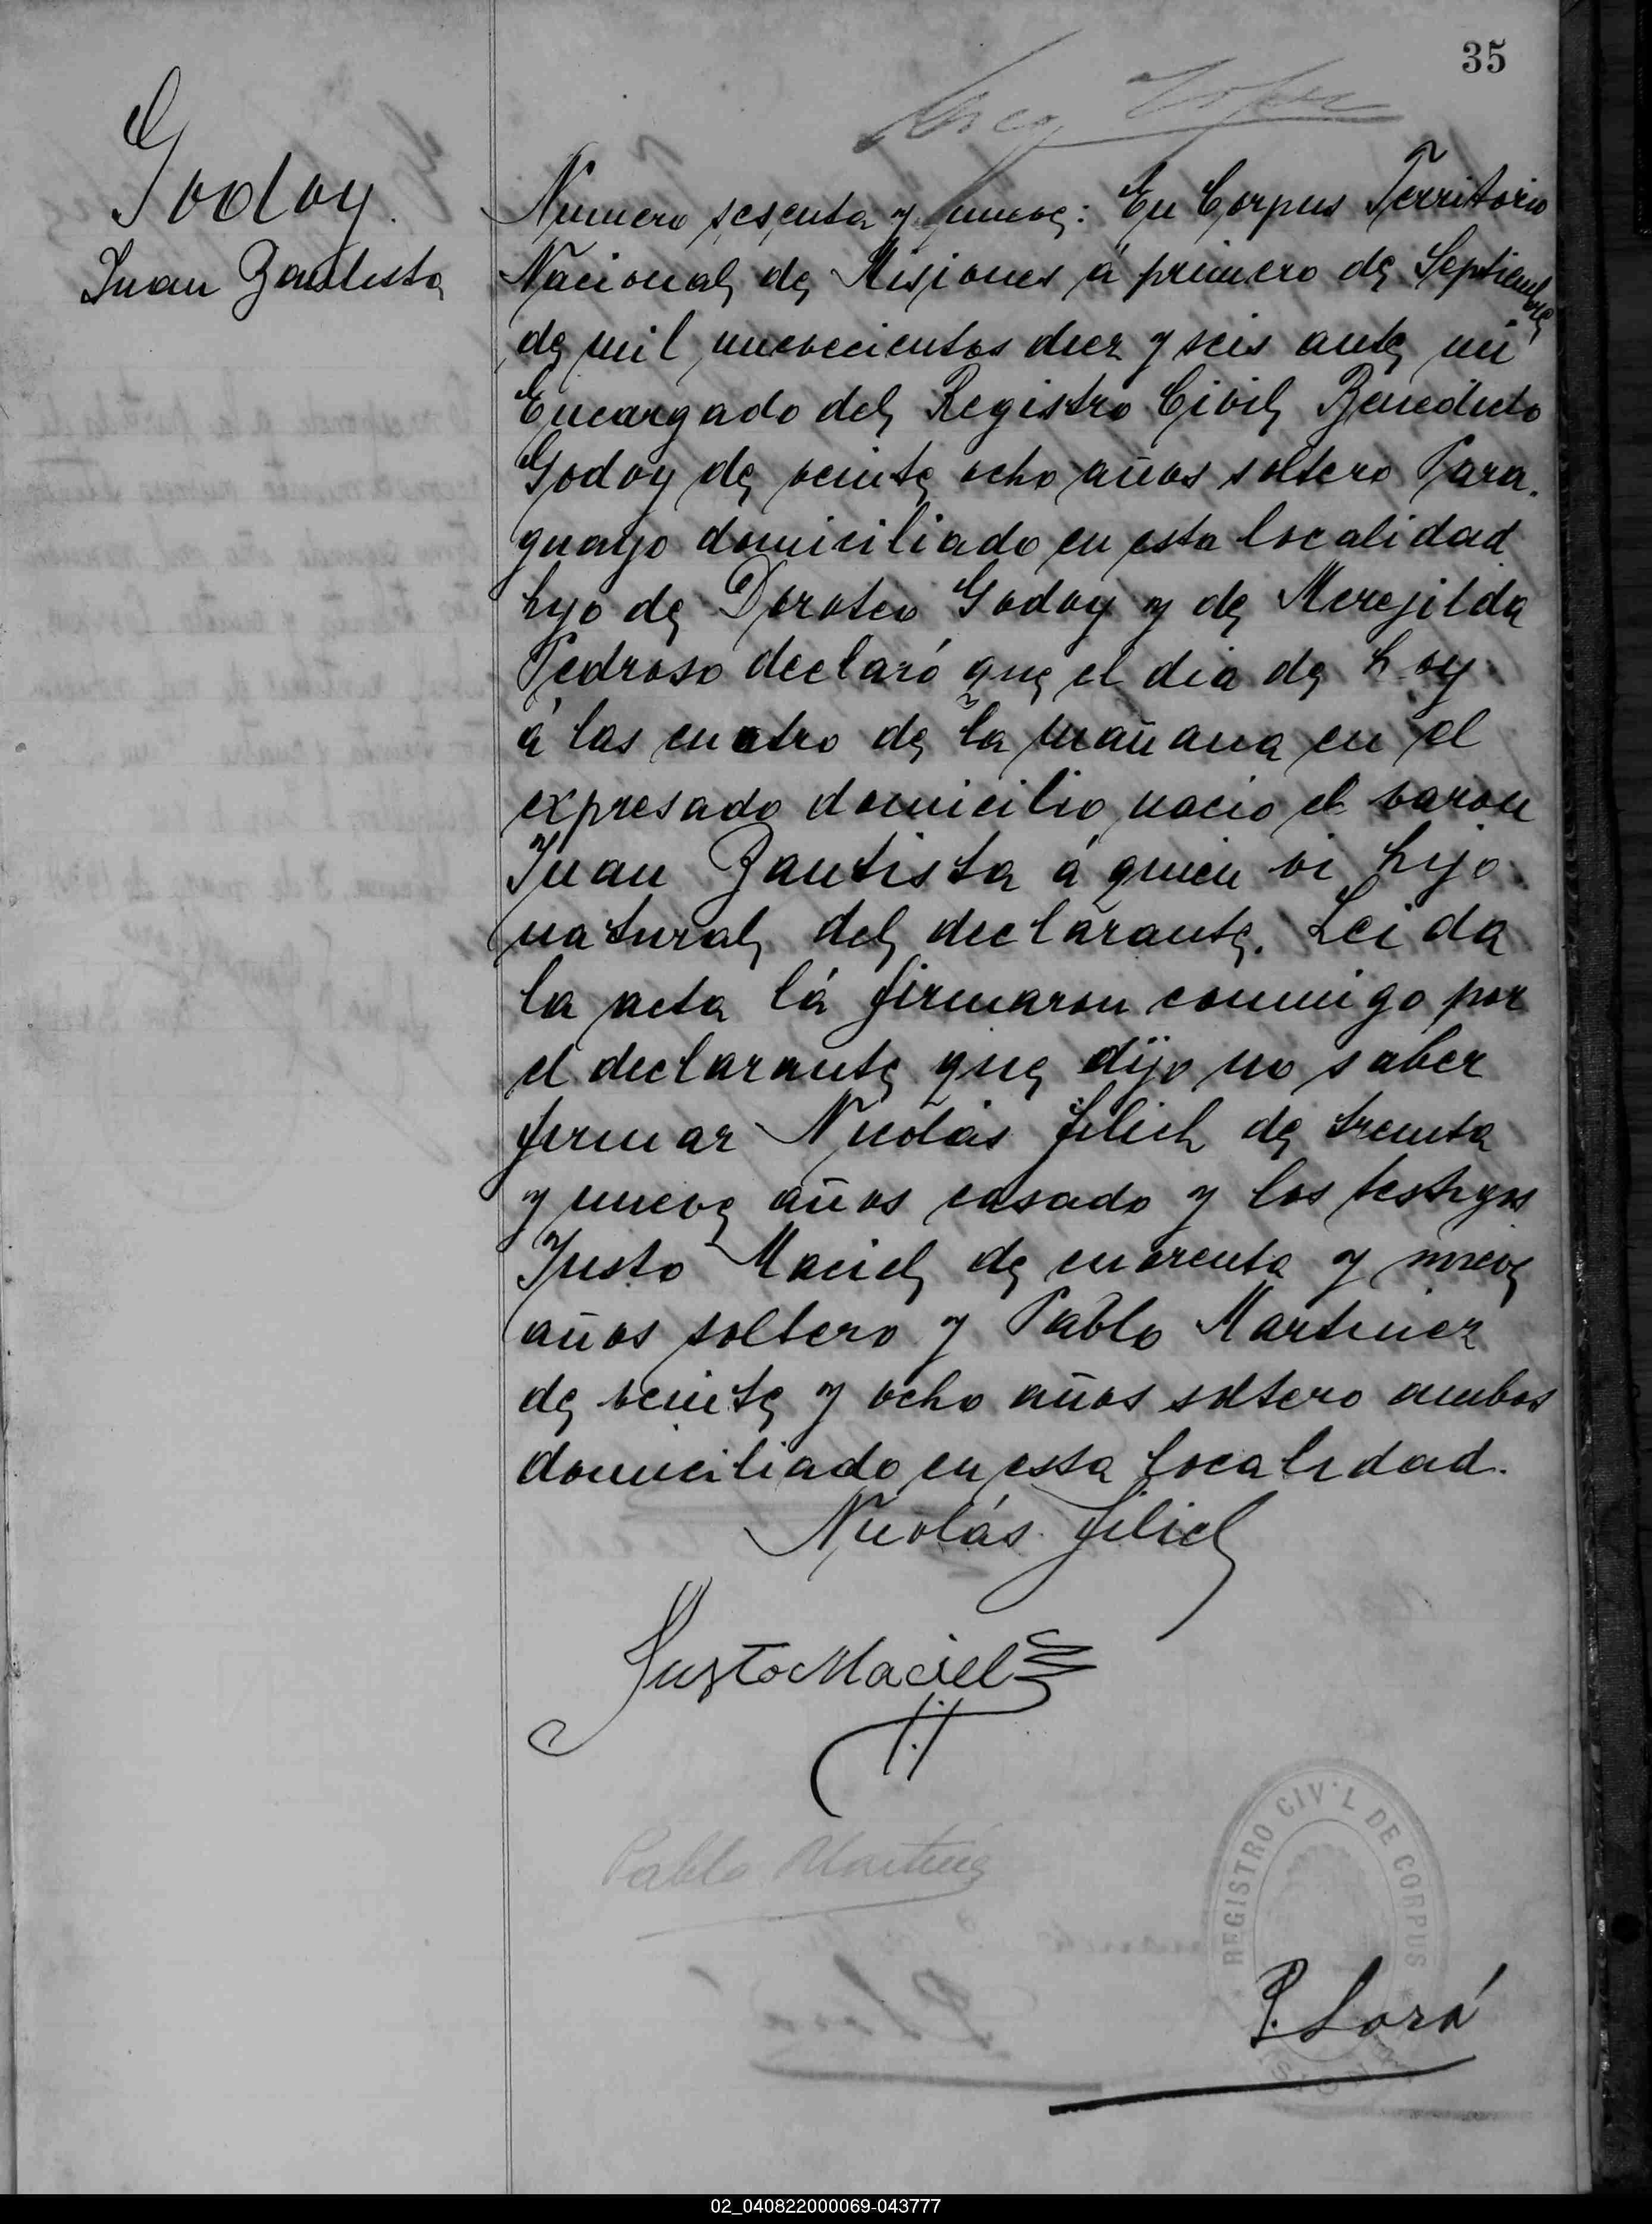 35
Godoy.
Juan Bautista
Numero sesenta y nueve: En Corpus Territorio
Nacional de Misiones á primero de Septiembre
de mil nuevecientos diez y seis ante mi
Encargado del Registro Civil Benedicto
Godoy de veinte ocho años soltero Para.
guayo domiciliado en esta localidad
hijo de Doroteo Godoy y de Merejilda
Pedroso declaró que el dia de hoy
á las cuatro de la mañana en el
expresado domicilio nacio el varon
Juan Bautista á quien vi hijo
natural del declarante. Leida
la acta lá firmaron conmigo por
el declarante que dijo no saber
firmar Nicolás Filich de treinta
y nueve años casado y los testigos
Justo Maciel de cuarenta y nueve
años soltero y Pablo Martinez
de veinte y ocho años soltero ambos
domiciliado en esta localidad.
Nicolás Filich
Justo Maciel
Pablo Martinez
REGISTRO CIVIL DE CORPUS
P. Lorá
02_040822000069-043777